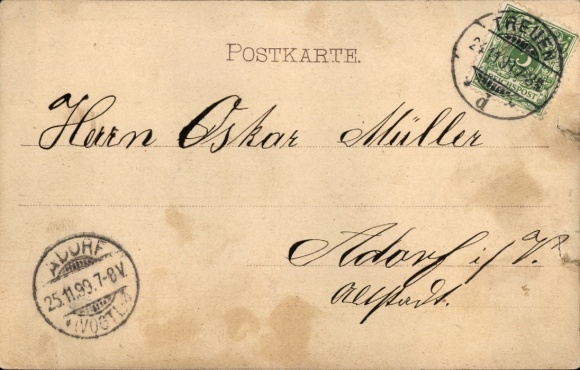 POSTKARTE.
TREUEN
5
REICHSPOST
d
Herrn Oskar Müller
Adorf i/V.
Altstadt.
ADORF
25.11.99.7-8V.
(VOGTL.)